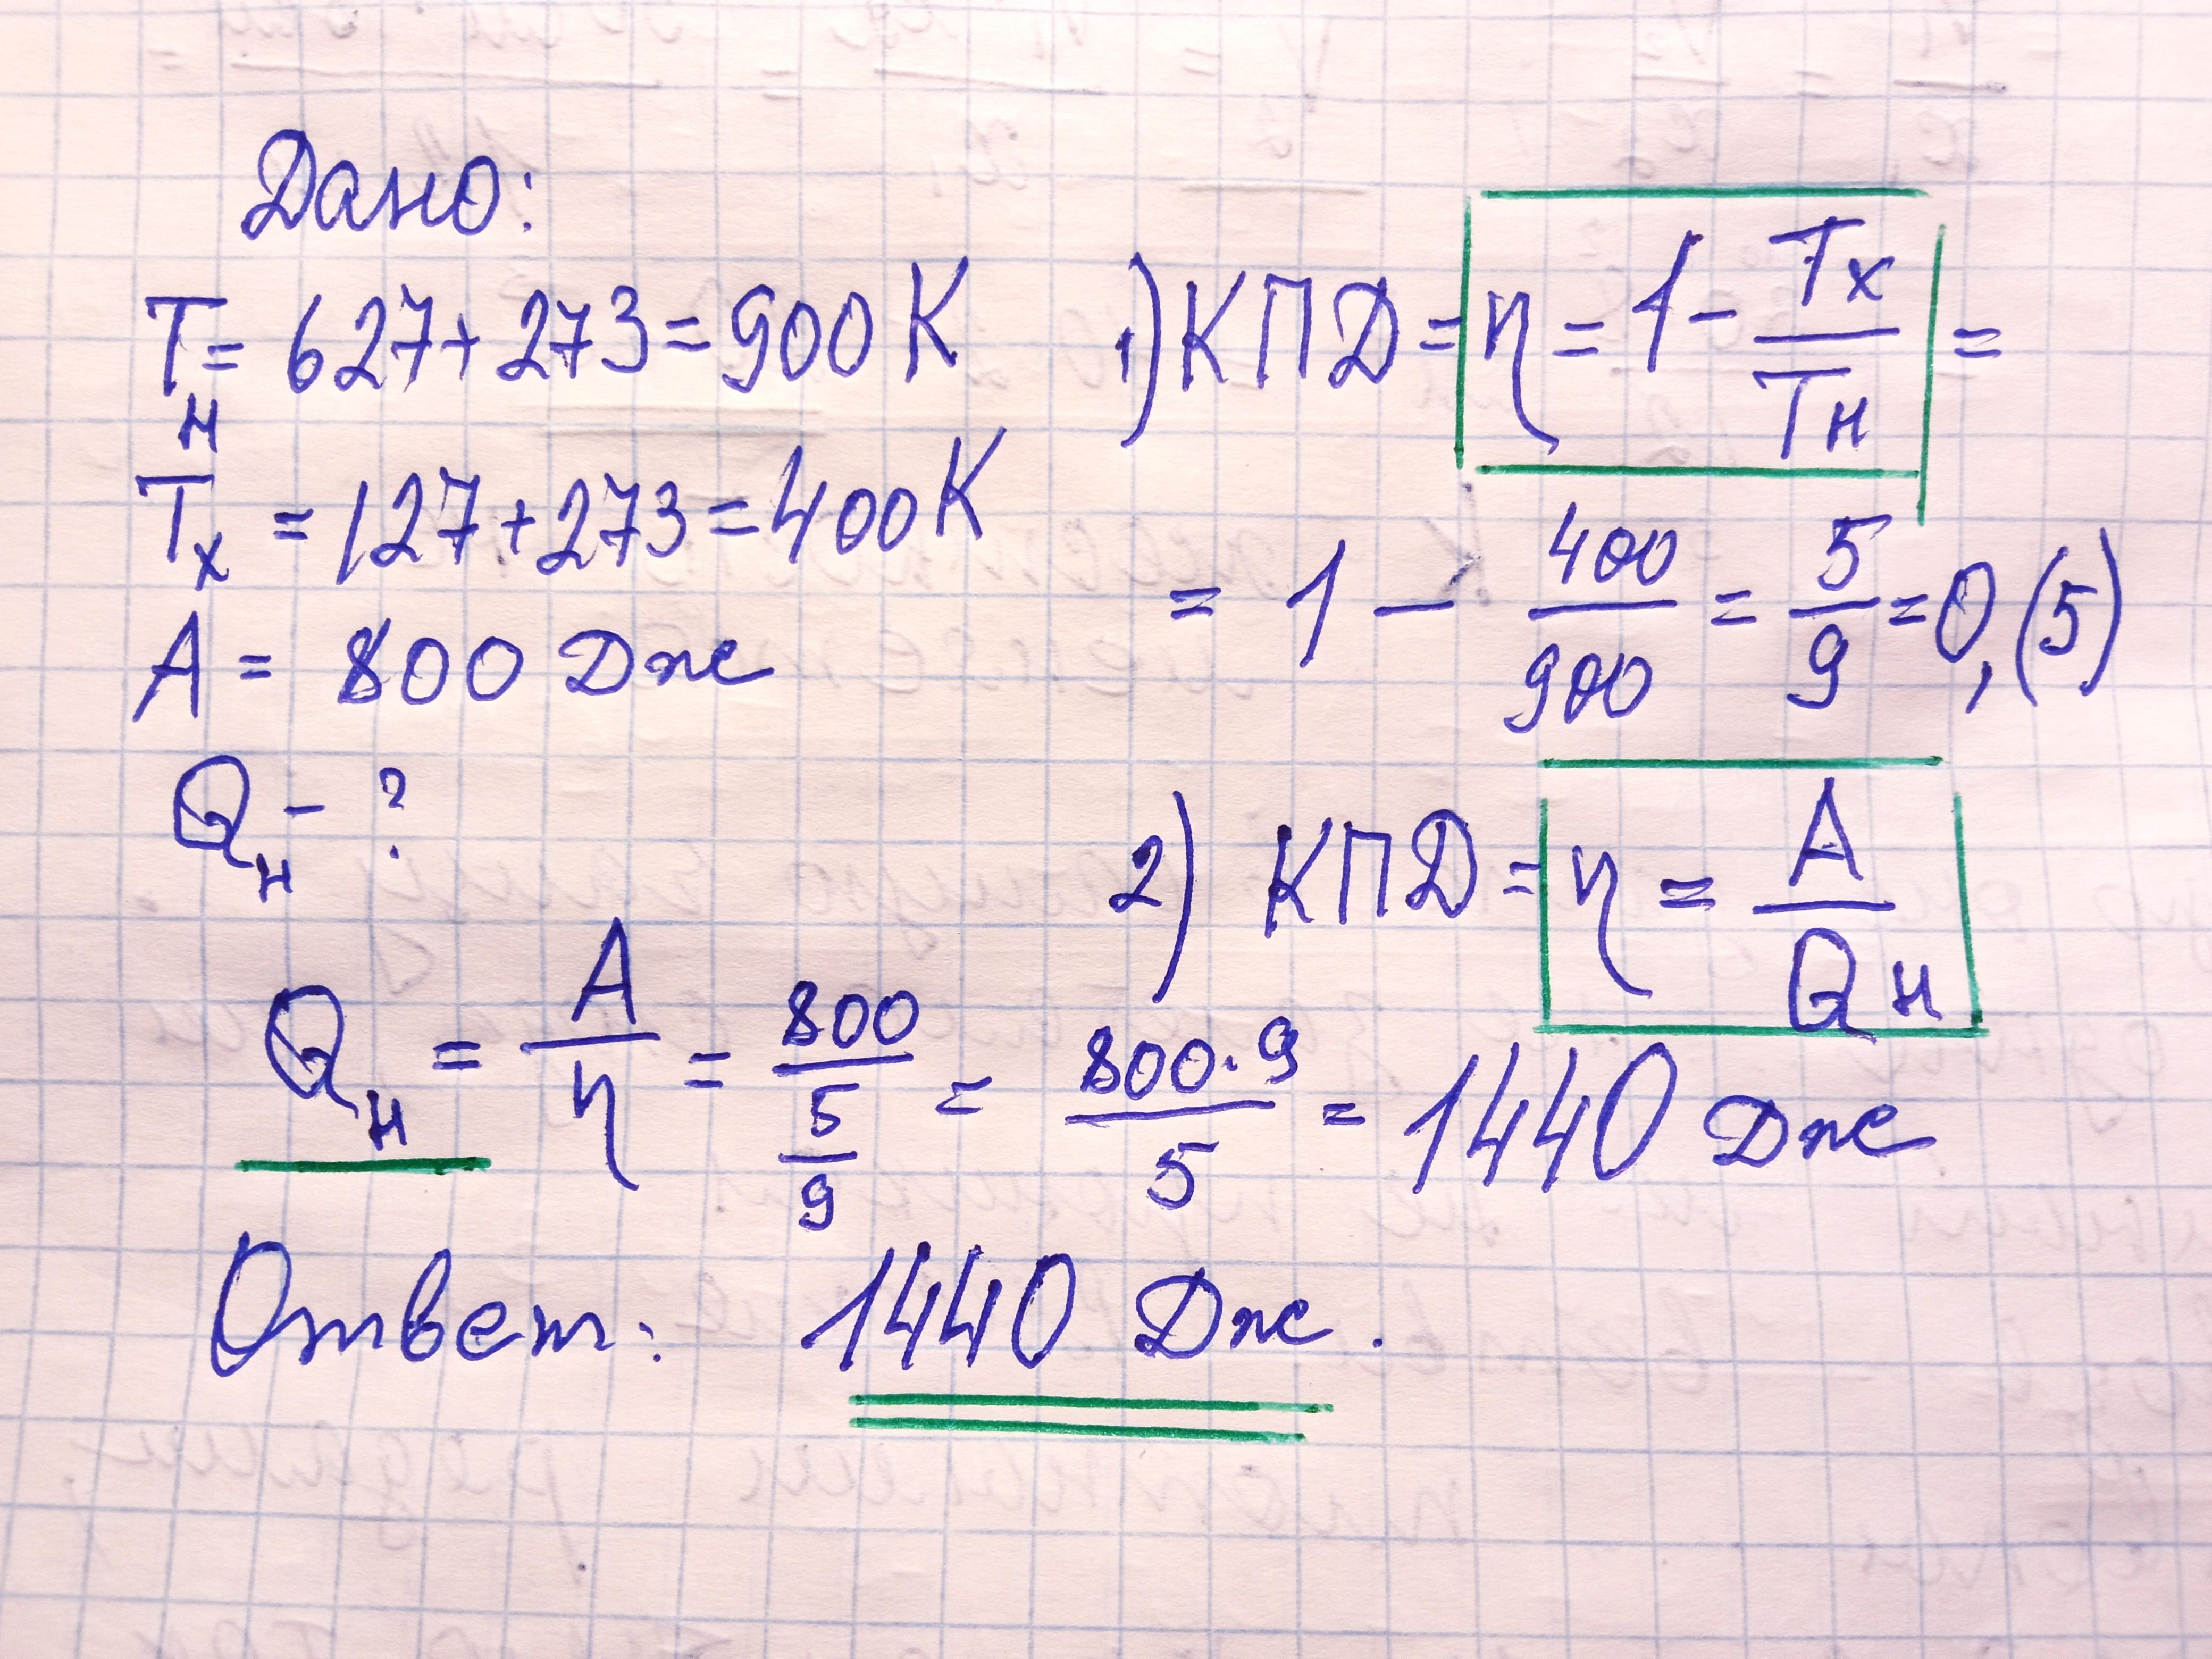 Дано:
T_н = 627+273=900 К
T_х = 127+273=400 К
A = 800 Дж
Q_н - ?
1) КПД = η = 1 - Tх/Tн =
= 1 - 400/900 = 5/9 = 0,(5)
2) КПД = η = A/Qн
Q_н = A/η = 800/(5/9) = 800·9/5 = 1440 Дж
Ответ: 1440 Дж.